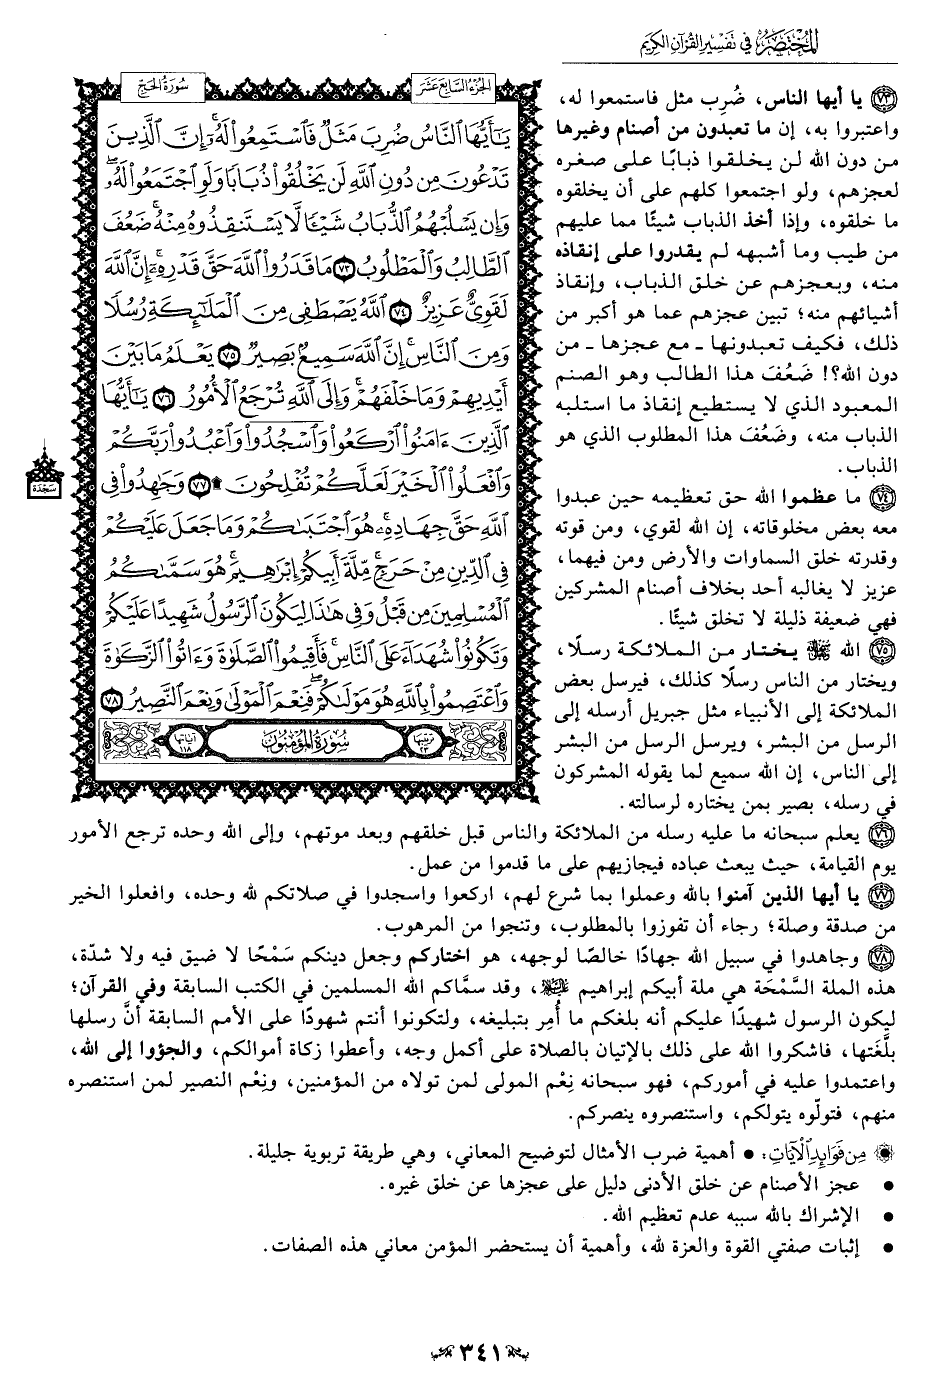 المختصر في تفسير القرآن الكريم
الجزء السابع عشر
سورة الحج
يَٰٓأَيُّهَا ٱلنَّاسُ ضُرِبَ مَثَلٌ فَٱسْتَمِعُوا۟ لَهُۥٓ ۚ إِنَّ ٱلَّذِينَ
تَدْعُونَ مِن دُونِ ٱللَّهِ لَن يَخْلُقُوا۟ ذُبَابًا وَلَوِ ٱجْتَمَعُوا۟ لَهُۥ ۖ
وَإِن يَسْلُبْهُمُ ٱلذُّبَابُ شَيْـًٔا لَّا يَسْتَنقِذُوهُ مِنْهُ ۚ ضَعُفَ
ٱلطَّالِبُ وَٱلْمَطْلُوبُ ٧٣ مَا قَدَرُوا۟ ٱللَّهَ حَقَّ قَدْرِهِۦٓ ۗ إِنَّ ٱللَّهَ
لَقَوِىٌّ عَزِيزٌ ٧٤ ٱللَّهُ يَصْطَفِى مِنَ ٱلْمَلَٰٓئِكَةِ رُسُلًا
وَمِنَ ٱلنَّاسِ ۚ إِنَّ ٱللَّهَ سَمِيعٌۢ بَصِيرٌ ٧٥ يَعْلَمُ مَا بَيْنَ
أَيْدِيهِمْ وَمَا خَلْفَهُمْ ۗ وَإِلَى ٱللَّهِ تُرْجَعُ ٱلْأُمُورُ ٧٦ يَٰٓأَيُّهَا
ٱلَّذِينَ ءَامَنُوا۟ ٱرْكَعُوا۟ وَٱسْجُدُوا۟ وَٱعْبُدُوا۟ رَبَّكُمْ
وَٱفْعَلُوا۟ ٱلْخَيْرَ لَعَلَّكُمْ تُفْلِحُونَ ۩ ٧٧ وَجَٰهِدُوا۟ فِى
ٱللَّهِ حَقَّ جِهَادِهِۦ ۚ هُوَ ٱجْتَبَىٰكُمْ وَمَا جَعَلَ عَلَيْكُمْ
فِى ٱلدِّينِ مِنْ حَرَجٍ ۚ مِّلَّةَ أَبِيكُمْ إِبْرَٰهِيمَ ۚ هُوَ سَمَّىٰكُمُ
ٱلْمُسْلِمِينَ مِن قَبْلُ وَفِى هَٰذَا لِيَكُونَ ٱلرَّسُولُ شَهِيدًا عَلَيْكُمْ
وَتَكُونُوا۟ شُهَدَآءَ عَلَى ٱلنَّاسِ ۚ فَأَقِيمُوا۟ ٱلصَّلَوٰةَ وَءَاتُوا۟ ٱلزَّكَوٰةَ
وَٱعْتَصِمُوا۟ بِٱللَّهِ هُوَ مَوْلَىٰكُمْ ۖ فَنِعْمَ ٱلْمَوْلَىٰ وَنِعْمَ ٱلنَّصِيرُ ٧٨
ترتيبها ٢٣ سورة المؤمنون آياتها ١١٨
سجدة
٧٣ يا أيها الناس، ضُرِب مثل فاستمعوا له،
واعتبروا به، إن ما تعبدون من أصنام وغيرها
من دون الله لن يخلقوا ذبابًا على صغره
لعجزهم، ولو اجتمعوا كلهم على أن يخلقوه
ما خلقوه، وإذا أخذ الذباب شيئًا مما عليهم
من طيب وما أشبهه لم يقدروا على إنقاذه
منه، وبعجزهم عن خلق الذباب، وإنقاذ
أشيائهم منه؛ تبين عجزهم عما هو أكبر من
ذلك، فكيف تعبدونها ـ مع عجزها ـ من
دون الله؟! ضَعُفَ هذا الطالب وهو الصنم
المعبود الذي لا يستطيع إنقاذ ما استلبه
الذباب منه، وضَعُفَ هذا المطلوب الذي هو
الذباب.
٧٤ ما عظموا الله حق تعظيمه حين عبدوا
معه بعض مخلوقاته، إن الله لقوي، ومن قوته
وقدرته خلق السماوات والأرض ومن فيهما،
عزيز لا يغالبه أحد بخلاف أصنام المشركين
فهي ضعيفة ذليلة لا تخلق شيئًا.
٧٥ الله ﷻ يختار من الملائكة رسلًا،
ويختار من الناس رسلًا كذلك، فيرسل بعض
الملائكة إلى الأنبياء مثل جبريل أرسله إلى
الرسل من البشر، ويرسل الرسل من البشر
إلى الناس، إن الله سميع لما يقوله المشركون
في رسله، بصير بمن يختاره لرسالته.
٧٦ يعلم سبحانه ما عليه رسله من الملائكة والناس قبل خلقهم وبعد موتهم، وإلى الله وحده ترجع الأمور
يوم القيامة، حيث يبعث عباده فيجازيهم على ما قدموا من عمل.
٧٧ يا أيها الذين آمنوا بالله وعملوا بما شرع لهم، اركعوا واسجدوا في صلاتكم لله وحده، وافعلوا الخير
من صدقة وصلة؛ رجاء أن تفوزوا بالمطلوب، وتنجوا من المرهوب.
٧٨ وجاهدوا في سبيل الله جهادًا خالصًا لوجهه، هو اختاركم وجعل دينكم سَمْحًا لا ضيق فيه ولا شدّة،
هذه الملة السَّمْحَة هي ملة أبيكم إبراهيم عليه السلام، وقد سمَّاكم الله المسلمين في الكتب السابقة وفي القرآن؛
ليكون الرسول شهيدًا عليكم أنه بلغكم ما أُمِر بتبليغه، ولتكونوا أنتم شهودًا على الأمم السابقة أنَّ رسلها
بلَّغَتها، فاشكروا الله على ذلك بالإتيان بالصلاة على أكمل وجه، وأعطوا زكاة أموالكم، والجؤوا إلى الله،
واعتمدوا عليه في أموركم، فهو سبحانه نِعْم المولى لمن تولاه من المؤمنين، ونِعْم النصير لمن استنصره
منهم، فتولّوه يتولكم، واستنصروه ينصركم.
من فوائد الآيات: • أهمية ضرب الأمثال لتوضيح المعاني، وهي طريقة تربوية جليلة.
• عجز الأصنام عن خلق الأدنى دليل على عجزها عن خلق غيره.
• الإشراك بالله سببه عدم تعظيم الله.
• إثبات صفتي القوة والعزة لله، وأهمية أن يستحضر المؤمن معاني هذه الصفات.
٣٤١